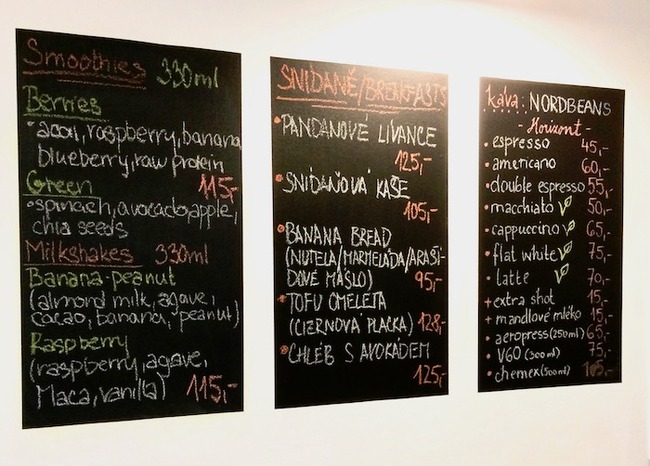 Smoothies 330ml
Berries
• acai, raspberry, banana
blueberry, raw protein
115,-
Green
• spinach, avocado, apple,
chia seeds
Milkshakes 330ml
Banana-peanut
(almond milk, agave,
cacao, banana, peanut)
Raspberry
(raspberry, agave,
Maca, vanilla) 115,-
SNÍDANĚ/BREKFASTS
• PANDANOVÉ LÍVANCE
125,-
• SNÍDAŇOVÁ KAŠE
105,-
• BANANA BREAD
(NUTELA/MARMELÁDA/ARAŠÍ-
DOVÉ MÁSLO) 95,-
• TOFU OMELETA
(CIZRNOVÁ PLACKA) 128,-
• CHLÉB S AVOKÁDEM
125,-
káva: NORDBEANS
- Horizont -
• espresso 45,-
• americano 60,-
• double espresso 55,-
• macchiato 50,-
• cappuccino 65,-
• flat white 75,-
• latte 70,-
+ extra shot 15,-
+ mandlové mléko 15,-
• aeropress (250ml) 65,-
• V60 (300ml) 75,-
• chemex (500ml)